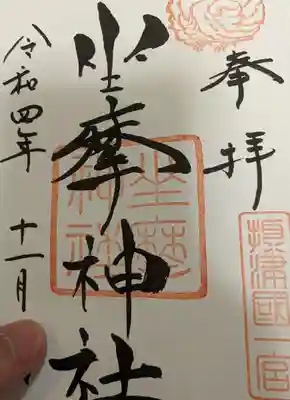 奉拝
摂津國一宮
坐摩神社
坐摩神社
令和四年十一月